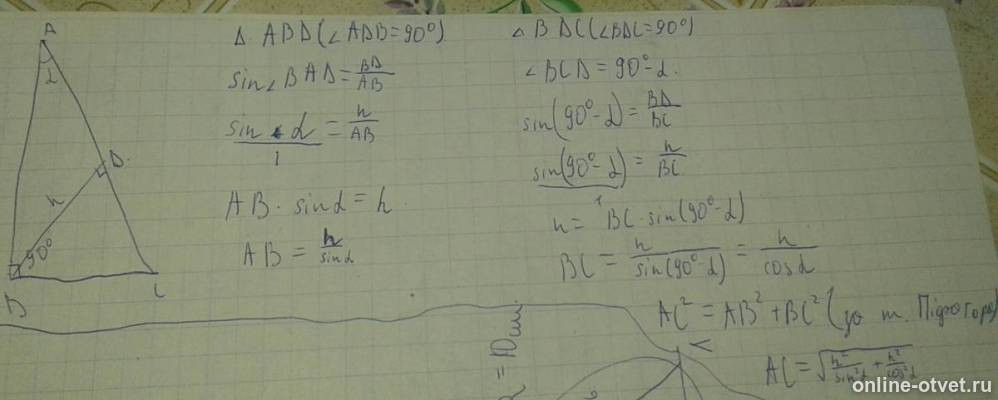 A
α
D
h
90°
B
C
Δ ABD (∠ADB=90°)
sin∠BAD = BD/AB
sin α / 1 = h/AB
AB · sin α = h
AB = h/sin α
Δ BDC (∠BDC=90°)
∠BCD = 90°-α.
sin(90°-α) = BD/BC
sin(90°-α) / 1 = h/BC
h = BC · sin(90°-α)
BC = h/sin(90°-α) = h/cos α
AC² = AB² + BC² (за т. Піфагора)
AC = √(h²/sin²α + h²/cos²α)
online-otvet.ru